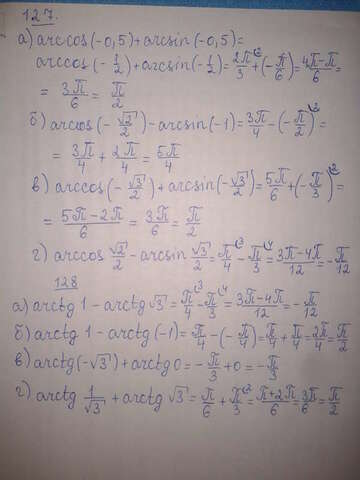 127.
а) arccos(-0,5)+arcsin(-0,5)=
arccos(-1/2)+arcsin(-1/2)=2π/3+(-π/6)=4π-π/6=
= 3π/6 = π/2
б) arccos(-√2/2)-arcsin(-1)=3π/4-(-π/2)=
= 3π/4 + 2π/4 = 5π/4
в) arccos(-√3/2)+arcsin(-√3/2)=5π/6+(-π/3)=
= 5π-2π/6 = 3π/6 = π/2
г) arccos √2/2 - arcsin √3/2 = π/4 - π/3 = 3π-4π/12 = -π/12
128
а) arctg 1 - arctg √3 = π/4 - π/3 = 3π-4π/12 = -π/12
б) arctg 1 - arctg(-1) = π/4 - (-π/4) = π/4 + π/4 = 2π/4 = π/2
в) arctg(-√3) + arctg 0 = -π/3 + 0 = -π/3
г) arctg 1/√3 + arctg √3 = π/6 + π/3 = π+2π/6 = 3π/6 = π/2